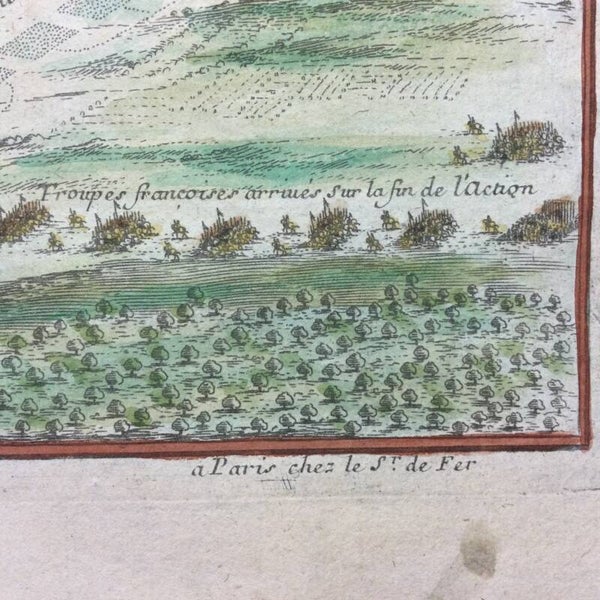 Troupes francoises arrivés sur la fin de l'Action
a Paris chez le Sr. de Fer